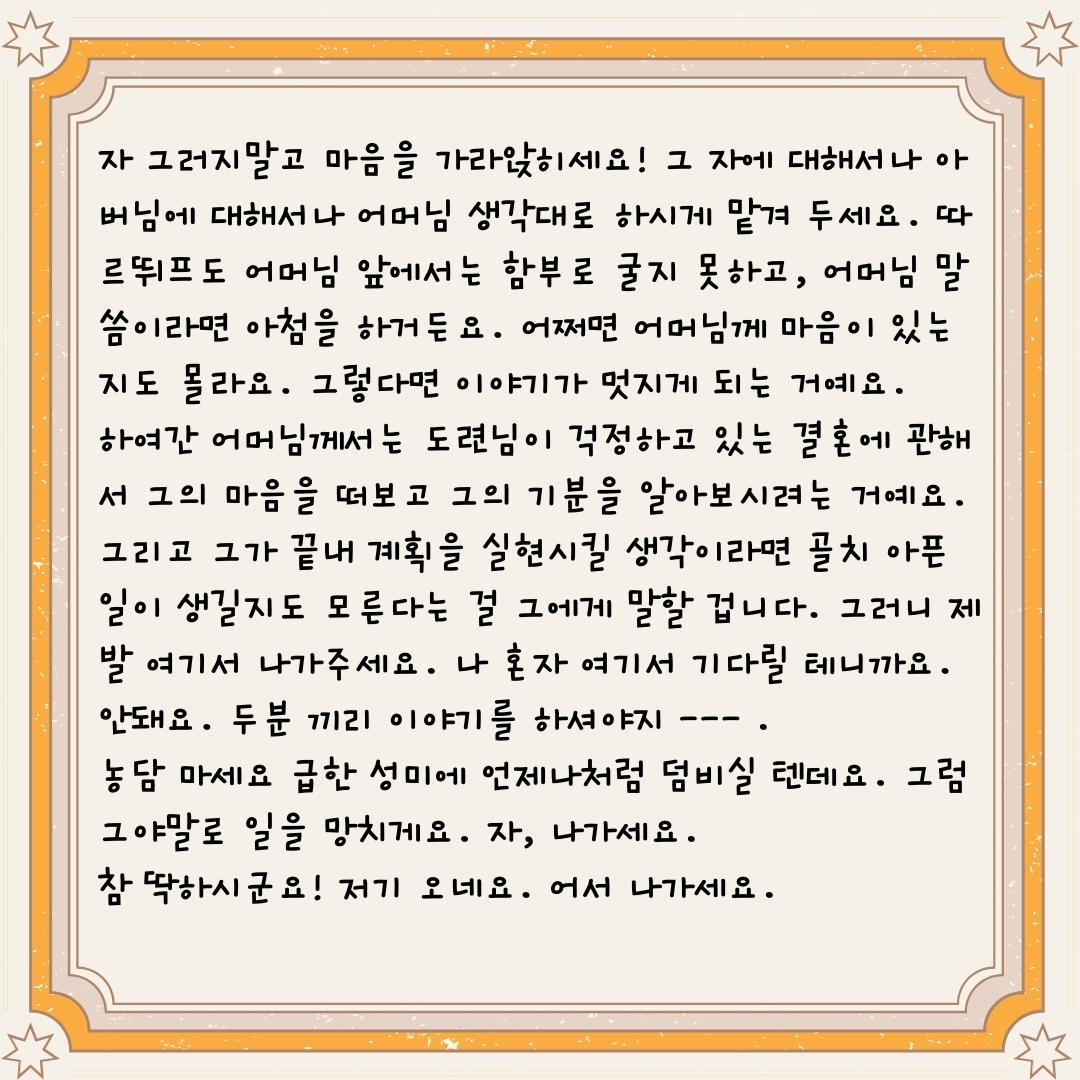 자 그러지말고 마음을 가라앉히세요! 그 자에 대해서나 아
버님에 대해서나 어머님 생각대로 하시게 맡겨 두세요. 따
르뛰프도 어머님 앞에서는 함부로 굴지 못하고, 어머님 말
씀이라면 아첨을 하거든요. 어쩌면 어머님께 마음이 있는
지도 몰라요. 그렇다면 이야기가 멋지게 되는 거예요.
하여간 어머님께서는 도련님이 걱정하고 있는 결혼에 관해
서 그의 마음을 떠보고 그의 기분을 알아보시려는 거예요.
그리고 그가 끝내 계획을 실현시킬 생각이라면 골치 아픈
일이 생길지도 모른다는 걸 그에게 말할 겁니다. 그러니 제
발 여기서 나가주세요. 나 혼자 여기서 기다릴 테니까요.
안돼요. 두분 끼리 이야기를 하셔야지 --- .
농담 마세요 급한 성미에 언제나처럼 덤비실 텐데요. 그럼
그야말로 일을 망치게요. 자, 나가세요.
참 딱하시군요! 저기 오네요. 어서 나가세요.